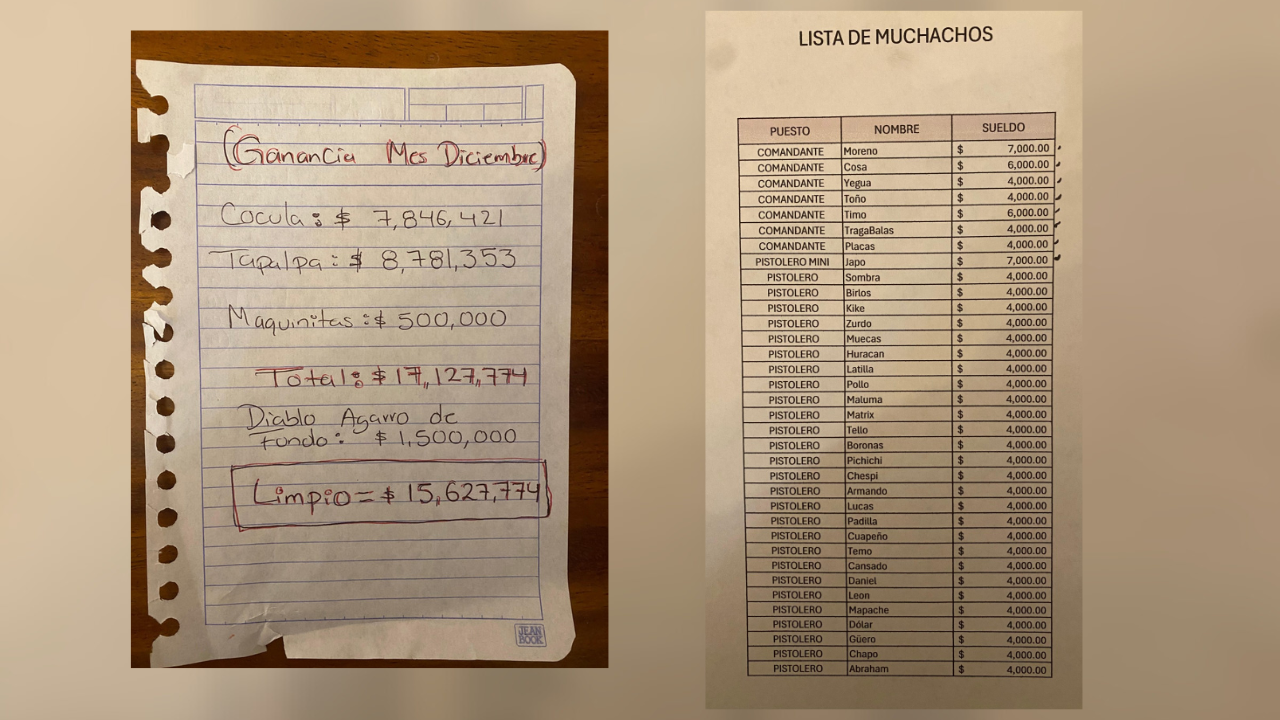 (Ganancia Mes Diciembre)
Cocula: $ 7,846,421
Tapalpa: $ 8,781,353
Maquinitas: $ 500,000
Total: $ 17,127,774
Diablo Agarro de
fondo: $ 1,500,000
Limpio = $ 15,627,774
JEAN
BOOK
LISTA DE MUCHACHOS
PUESTO NOMBRE SUELDO
COMANDANTE Moreno $ 7,000.00
COMANDANTE Cosa $ 6,000.00
COMANDANTE Yegua $ 4,000.00
COMANDANTE Toño $ 4,000.00
COMANDANTE Timo $ 6,000.00
COMANDANTE TragaBalas $ 4,000.00
COMANDANTE Placas $ 4,000.00
PISTOLERO MINI Japo $ 7,000.00
PISTOLERO Sombra $ 4,000.00
PISTOLERO Birlos $ 4,000.00
PISTOLERO Kike $ 4,000.00
PISTOLERO Zurdo $ 4,000.00
PISTOLERO Muecas $ 4,000.00
PISTOLERO Huracan $ 4,000.00
PISTOLERO Latilla $ 4,000.00
PISTOLERO Pollo $ 4,000.00
PISTOLERO Maluma $ 4,000.00
PISTOLERO Matrix $ 4,000.00
PISTOLERO Tello $ 4,000.00
PISTOLERO Boronas $ 4,000.00
PISTOLERO Pichichi $ 4,000.00
PISTOLERO Chespi $ 4,000.00
PISTOLERO Armando $ 4,000.00
PISTOLERO Lucas $ 4,000.00
PISTOLERO Padilla $ 4,000.00
PISTOLERO Cuapeño $ 4,000.00
PISTOLERO Temo $ 4,000.00
PISTOLERO Cansado $ 4,000.00
PISTOLERO Daniel $ 4,000.00
PISTOLERO Leon $ 4,000.00
PISTOLERO Mapache $ 4,000.00
PISTOLERO Dólar $ 4,000.00
PISTOLERO Güero $ 4,000.00
PISTOLERO Chapo $ 4,000.00
PISTOLERO Abraham $ 4,000.00